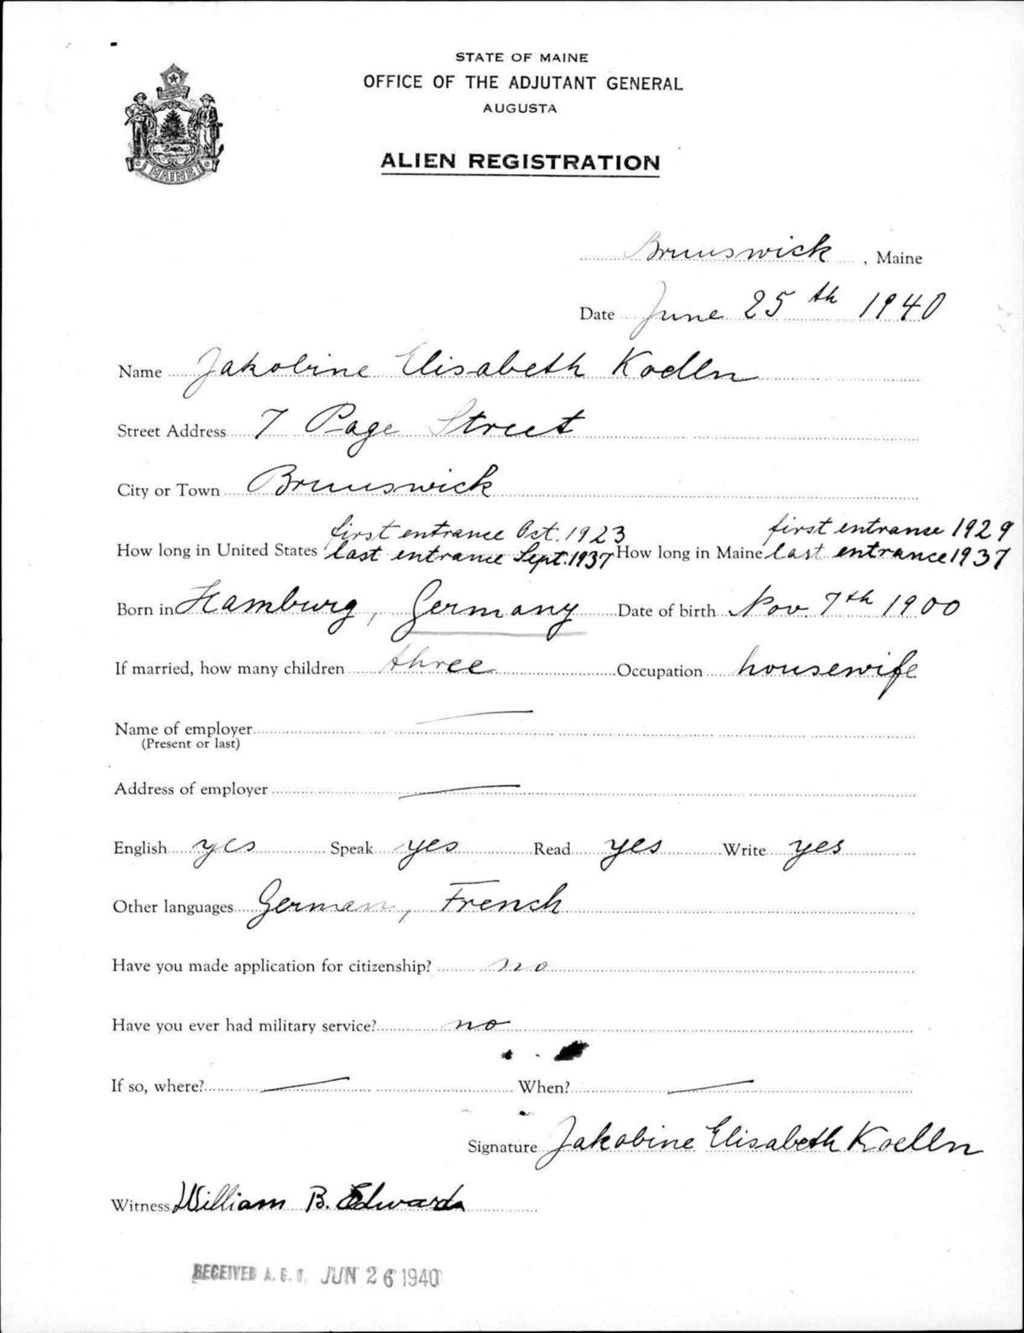 STATE OF MAINE
OFFICE OF THE ADJUTANT GENERAL
AUGUSTA
ALIEN REGISTRATION
MAINE
Brunswick, Maine
Date June 25th 1940
Name Jakobine Elisabeth Koelln
Street Address 7 Page Street
City or Town Brunswick
first entrance Oct. 1923 first entrance 1929
How long in United States last entrance Sept. 1937 How long in Maine last entrance 1937
Born in Hamburg, Germany Date of birth Nov. 7th 1900
If married, how many children three Occupation housewife
Name of employer
(Present or last)
Address of employer
English yes Speak yes Read yes Write yes
Other languages German, French
Have you made application for citizenship? no
Have you ever had military service? no
If so, where? When?
Signature Jakobine Elisabeth Koelln
Witness William B. Edwards
RECEIVED A. G. O. JUN 26 1940